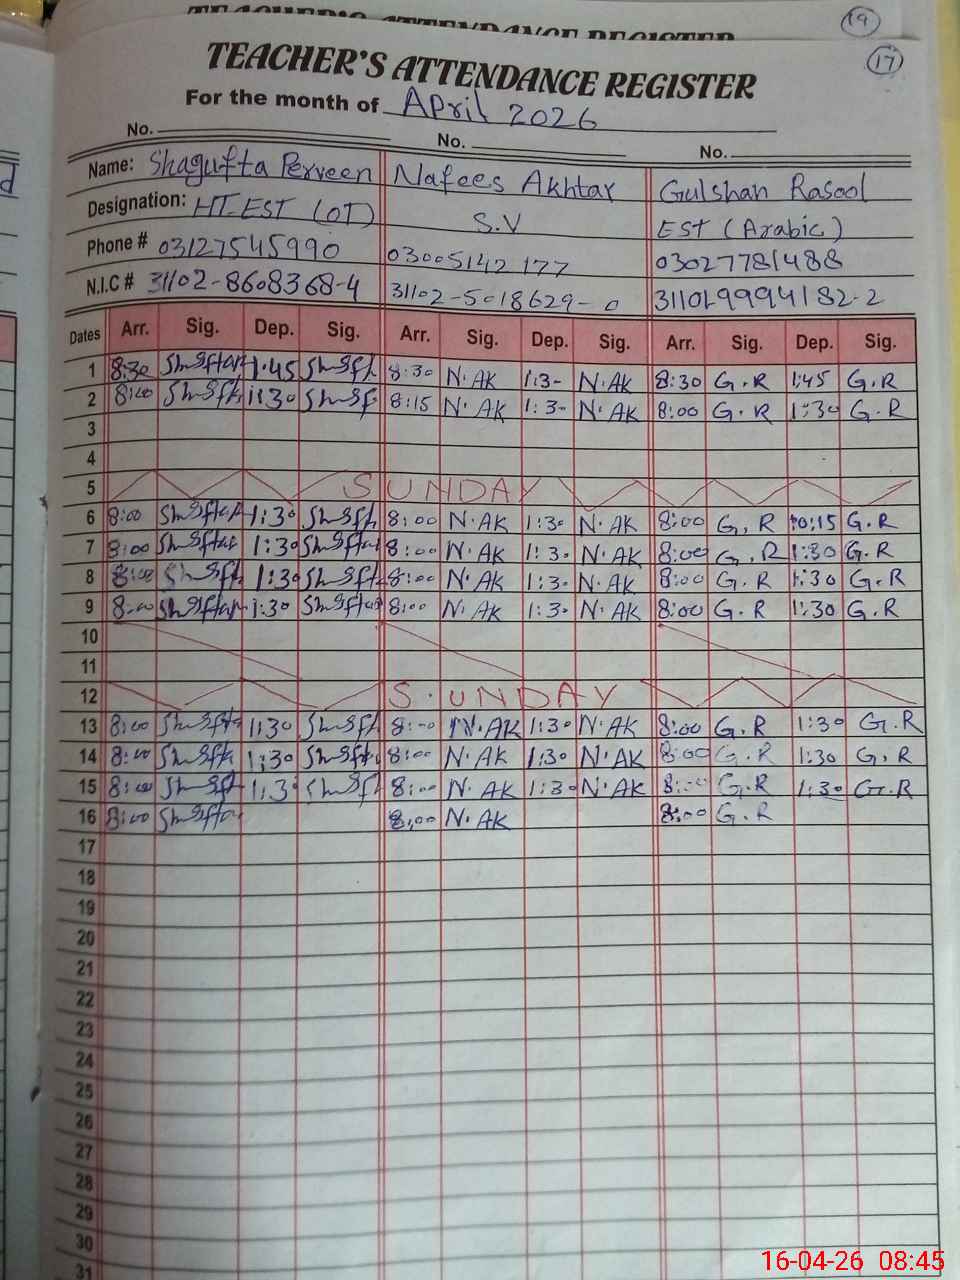 TEACHER'S ATTENDANCE REGISTER
19
17
TEACHER'S ATTENDANCE REGISTER
For the month of April 2026
No. No. No.
Name: Shagufta Perveen Nafees Akhtar Gulshan Rasool
Designation: HT-EST (OT) S.V EST (Arabic)
Phone # 03127545990 03005142177 03027781488
N.I.C # 31102-8608368-4 31102-5018629-0
Dates Arr. Sig. Dep. Sig. Arr. Sig. Dep. Sig. Arr. Sig. Dep. Sig.
1 8:30 1:45 8:30 N.AK 1:3- N.AK 8:30 G.R 1:45 G.R
2 8:00 1:30 8:15 N.AK 1:3- N.AK 8:00 G.R 1:30 G.R
3
4
5 SUNDAY
6 8:00 1:30 8:00 N.AK 1:30 N.AK 8:00 G.R 10:15 G.R
7 8:00 1:30 8:00 N.AK 1:30 N.AK 8:00 G.R 1:30 G.R
8 8:00 1:30 8:00 N.AK 1:30 N.AK 8:00 G.R 1:30 G.R
9 8:00 1:30 8:00 N.AK 1:30 N.AK 8:00 G.R 1:30 G.R
10
11
12 SUNDAY
13 8:00 1:30 8:00 N.AK 1:30 N.AK 8:00 G.R 1:30 G.R
14 8:00 1:30 8:00 N.AK 1:30 N.AK 8:00 G.R 1:30 G.R
15 8:00 1:30 8:00 N.AK 1:30 N.AK 8:00 G.R 1:30 G.R
16 8:00 8:00 N.AK 8:00 G.R
17
18
19
20
21
22
23
24
25
26
27
28
29
30
31
16-04-26 08:45